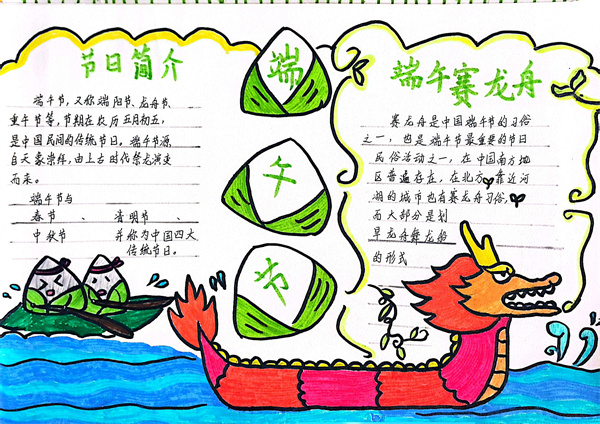 节日简介
端午节，又你端阳节、龙舟节、
重午节等，节期在农历五月初五，
是中国民间的传统节日。端午节源
自天象崇拜，由上古时代祭龙演变
而来。
端午节与
春节、清明节、
中秋节 并你为中国四大
传统节日。
端
午
节
端午赛龙舟
赛龙舟是中国端午节的习俗
之一，也是端午节最重要的节日
民俗活动之一，在中国南方地
区普遍存在，在北方靠近河
湖的城市也有赛龙舟习俗，
而大部分是划
旱龙舟舞龙船
的形式